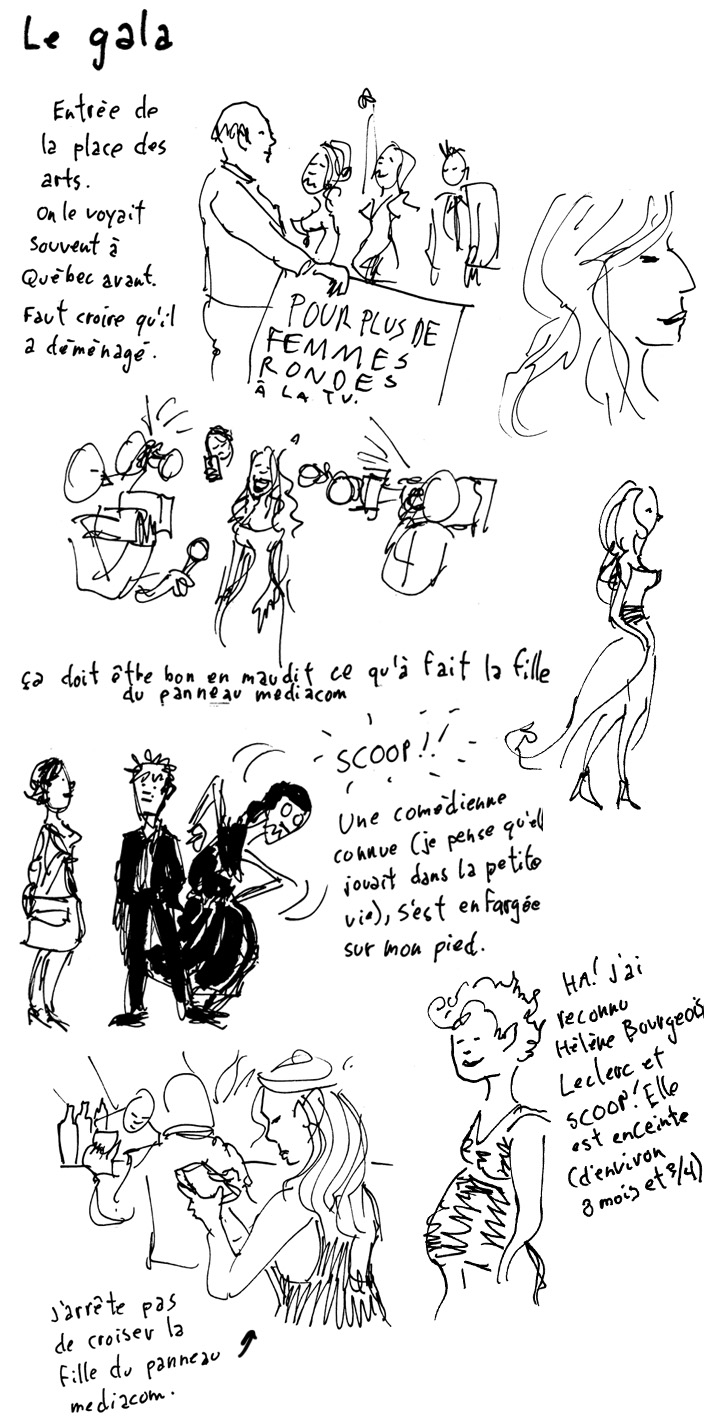 Le gala
Entrée de
la place des
arts.
On le voyait
souvent à
Québec avant.
Faut croire qu'il
a déménagé.
POUR PLUS DE
FEMMES
RONDES
À LA TV.
ça doit être bon en maudit ce qu'à fait la fille
du panneau mediacom
SCOOP!!
Une comédienne
connue (je pense qu'ell
jouait dans la petite
vie), s'est enfargée
sur mon pied.
HA! J'ai
reconnu
Hélène Bourgeois
Leclerc et
SCOOP! Elle
est enceinte
(d'environ
8 mois et 3/4)
J'arrête pas
de croiser la
fille du panneau
mediacom.